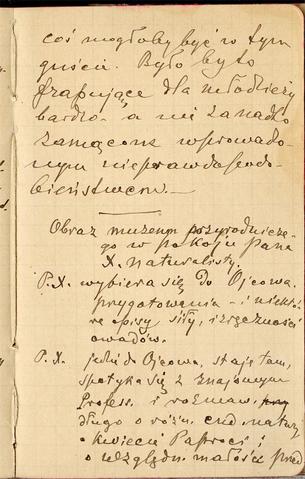 coś mogłoby być w tym
guście. Było by to
frapujące dla młodzieży
bardzo – a nie zanadto
zamącone wprowadzo-
nym nieprawdopodo-
bieństwem –
Obraz muzeum przyrodnicze-
go w pokoju pana
X. naturalisty
P.X. wybiera się do Ojcowa.
przygotowania – i niektó-
re opisy siły, i zręczności
owadów.
P.X. jedzie do Ojcowa, staje tam,
spotyka się z znajomym
Profes. i rozmaw.
długo o różn. cud. natury
o kwiecie Paproci i
o względn. małości przed